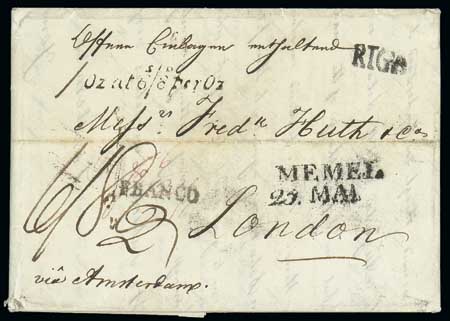 Offene Einlagen enthaltend
RIGA
1/ oz at 6/8 per oz
Messrs Fredk Huth & Co
FRANCO
MEMEL
25. MAI
London
via Amsterdam.